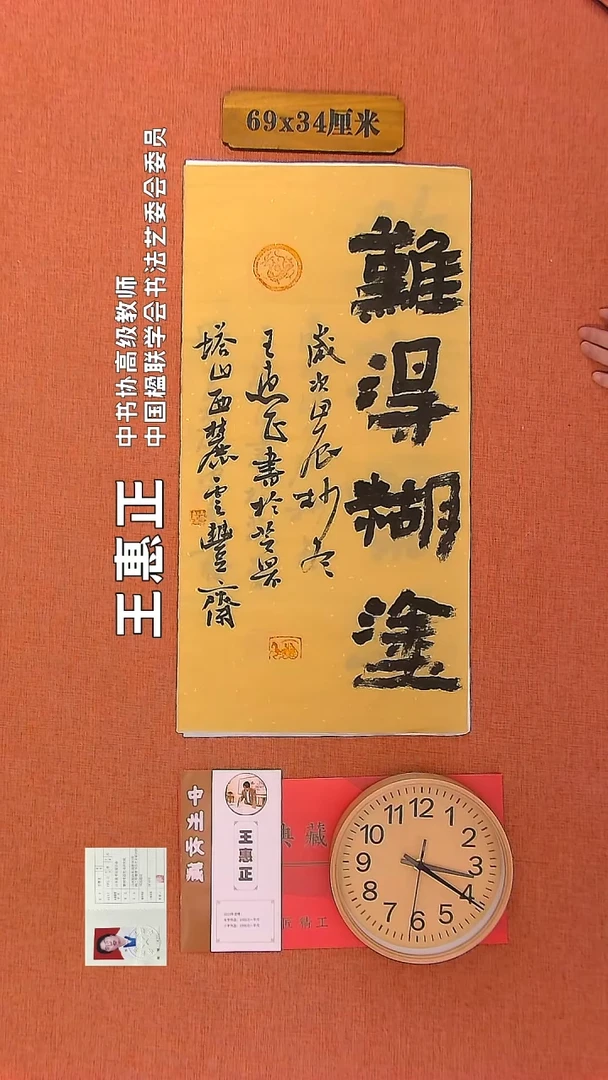 69x34厘米
難得糊塗
歲次甲辰杪冬
王惠正書於岱景
塔山西麓雲豐齋
中书协高级教师
中国楹联学会书法艺委会委员
王惠正
王惠正
典藏
匠精工
12
1
2
3
4
5
6
7
8
9
10
11